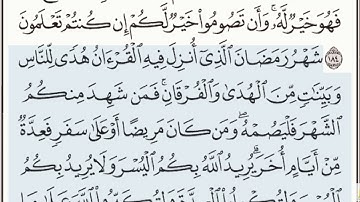 فَهُوَ خَيْرٌ لَّهُۥ ۚ وَأَن تَصُومُوا۟ خَيْرٌ لَّكُمْ إِن كُنتُمْ تَعْلَمُونَ
١٨٤ شَهْرُ رَمَضَانَ ٱلَّذِىٓ أُنزِلَ فِيهِ ٱلْقُرْءَانُ هُدًى لِّلنَّاسِ
وَبَيِّنَٰتٍ مِّنَ ٱلْهُدَىٰ وَٱلْفُرْقَانِ ۚ فَمَن شَهِدَ مِنكُمُ
ٱلشَّهْرَ فَلْيَصُمْهُ ۖ وَمَن كَانَ مَرِيضًا أَوْ عَلَىٰ سَفَرٍ فَعِدَّةٌ
مِّنْ أَيَّامٍ أُخَرَ ۗ يُرِيدُ ٱللَّهُ بِكُمُ ٱلْيُسْرَ وَلَا يُرِيدُ بِكُمُ